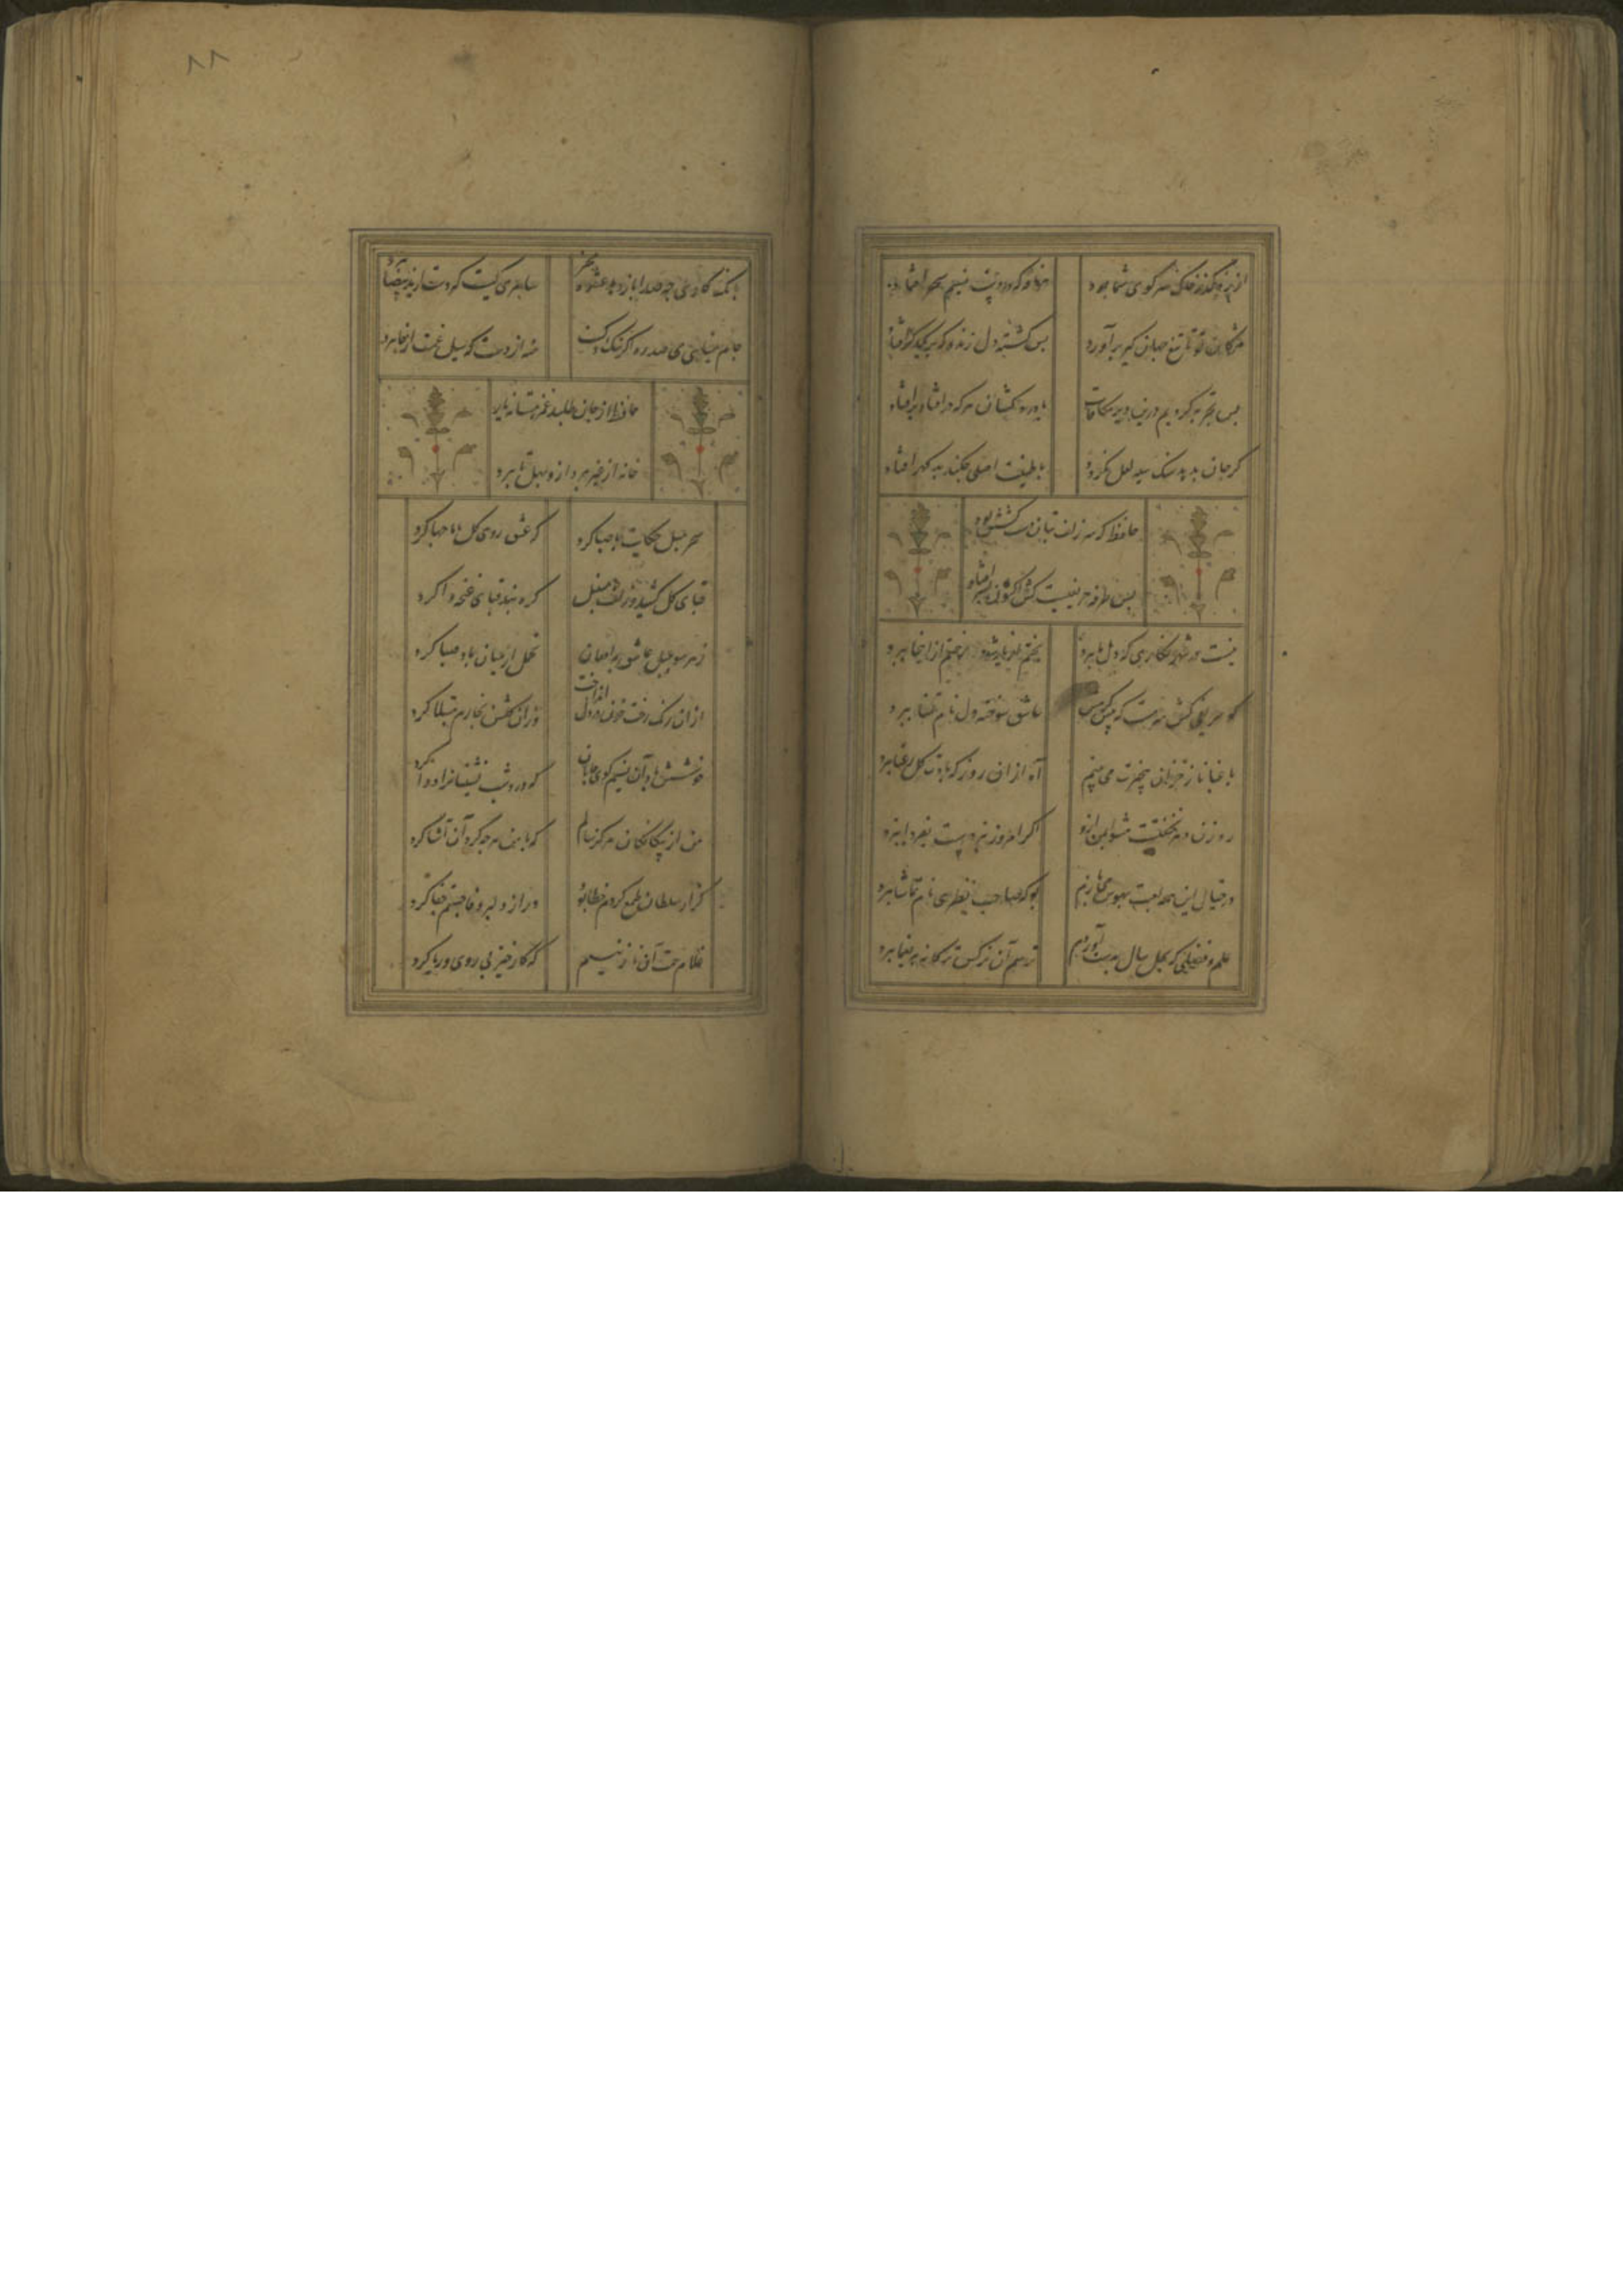 از رهگذر خاک سر کوی شما بود
هر نافه که در دست نسیم سحر افتاد
مژگان تو تا تیغ جهان گیر برآورد
بس کشته دل زنده که بر یکدگر افتاد
بس تجربه کردیم درین دیر مکافات
با دردکشان هر که درافتاد برافتاد
گر جان بدهد سنک سیه لعل نگردد
با طینت اصلی چکند بد گهر افتاد
حافظ که سر زلف بتان دست کشش بود
بس طرفه حریفیست کش اکنون بسر افتاد
نیست در شهر نگاری که دل ما ببرد
بختم ار یار شود رختم از اینجا ببرد
کو حریفی کش سرمست که پیش کرمش
عاشق سوخته دل نام تمنا ببرد
باغبانا ز خزان بیخبرت می بینم
آه ازان روز که بادت گل رعنا ببرد
رهزن دهر نخفتست مشو ایمن ازو
اگر امروز نبردست بفردا ببرد
در خیال این همه لعبت بهوس می بازم
بو که صاحب نظری نام تماشا ببرد
علم و فضلی که بچل سال بدست آوردم
ترسم آن نرگس ترکانه بیغما ببرد
بانک گاوی چه صدا باز دهد عشوه مخر
سامری کیست که دست از ید بیضا ببرد
جام مینایی می سد ره تنک دلیست
منه از دست که سیل غمت از جا ببرد
حافظ ار جان طلبد غمزه مستانه یار
خانه از غیر بپرداز و بهل تا ببرد
سحر بلبل حکایت با صبا کرد
که عشق روی گل با ما چها کرد
نقاب گل کشید و زلف سنبل
گره بند قبای غنچه وا کرد
ز هر سو بلبل عاشق در افغان
تنعم از میان باد صبا کرد
ازان رنک رخت خون در دل انداخت
وزان گلشن بخارم مبتلا کرد
خوشش باد آن نسیم کوی جانان
که درد شب نشینانرا دوا کرد
من از بیگانگان هرگز ننالم
که با من هر چه کرد آن آشنا کرد
گر از سلطان طمع کردم خطا بود
ور از دلبر وفا جستم جفا کرد
غلام همت آن نازنینم
که کار خیر بی روی و ریا کرد
۸۸